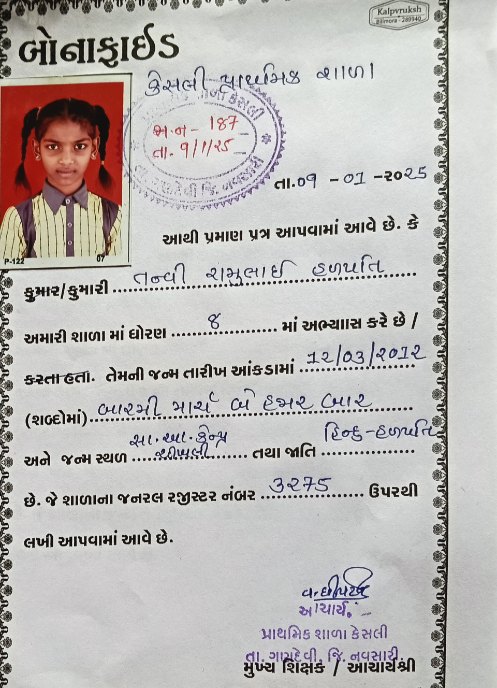 Kalpvruksh
Bilimora - 289940
બોનાફાઈડ
કેસલી પ્રાથમિક શાળા
જા.નં - 187
તા. 9/1/25
તા. ગણદેવી જિ. નવસારી
તા.૦9 - ૦1 -૨૦25
આથી પ્રમાણ પ્રત્ર આપવામાં આવે છે. કે
P-122 07
કુમાર/કુમારી તન્વી રામુભાઈ હળપતિ
અમારી શાળા માં ધોરણ ૪ માં અભ્યાાસ કરે છે /
કરતા હતા. તેમની જન્મ તારીખ આંકડામાં 12/03/2012
(શબ્દોમાં) બારમી માર્ચ બે હજાર બાર
અને જન્મ સ્થળ સા.આ.કેન્દ્ર ચીખલી તથા જાતિ હિન્દુ-હળપતિ
છે. જે શાળાના જનરલ રજીસ્ટર નંબર 3275 ઉપરથી
લખી આપવામાં આવે છે.
આચાર્ય.
પ્રાથમિક શાળા કેસલી
તા. ગણદેવી, જિ. નવસારી.
મુખ્ય શિક્ષક / આચાર્યશ્રી